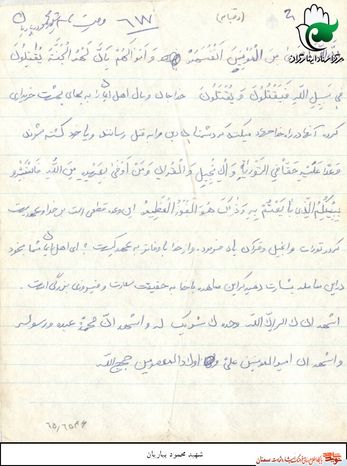 ۲
۶۷۷
من المؤمنین انفسهم و اموالهم بأن لهم الجنة یقتلون
فی سبیل الله فیقتلون و یقتلون خدا جان و مال اهل ایمان را به بهای بهشت خریداری
کرد آنها در راه خدا جهاد میکنند که دشمنان دین را به قتل رسانند و یا خود کشته شوند
وعداً علیه حقاً فی التوریة و الانجیل و القرآن و من أوفی بعهده من الله فاستبشروا
ببیعکم الذی بایعتم به و ذلک هو الفوز العظیم این وعده قطعی است بر خدا و عهدیست
که در تورات و انجیل و قرآن یاد فرمود و از خدا باوفاتر به عهد کیست؟ ای اهل ایمان شما بخود
در این معامله بشارت دهید که این معاهده با خدا به حقیقت سعادت و فیروزی بزرگی است.
اشهد ان لا اله الا الله وحده لا شریک له و اشهد ان محمداً عبده و رسوله
و اشهد ان امیرالمؤمنین علی و اولاد المعصومین حجج الله
شهید محمود بیاریان